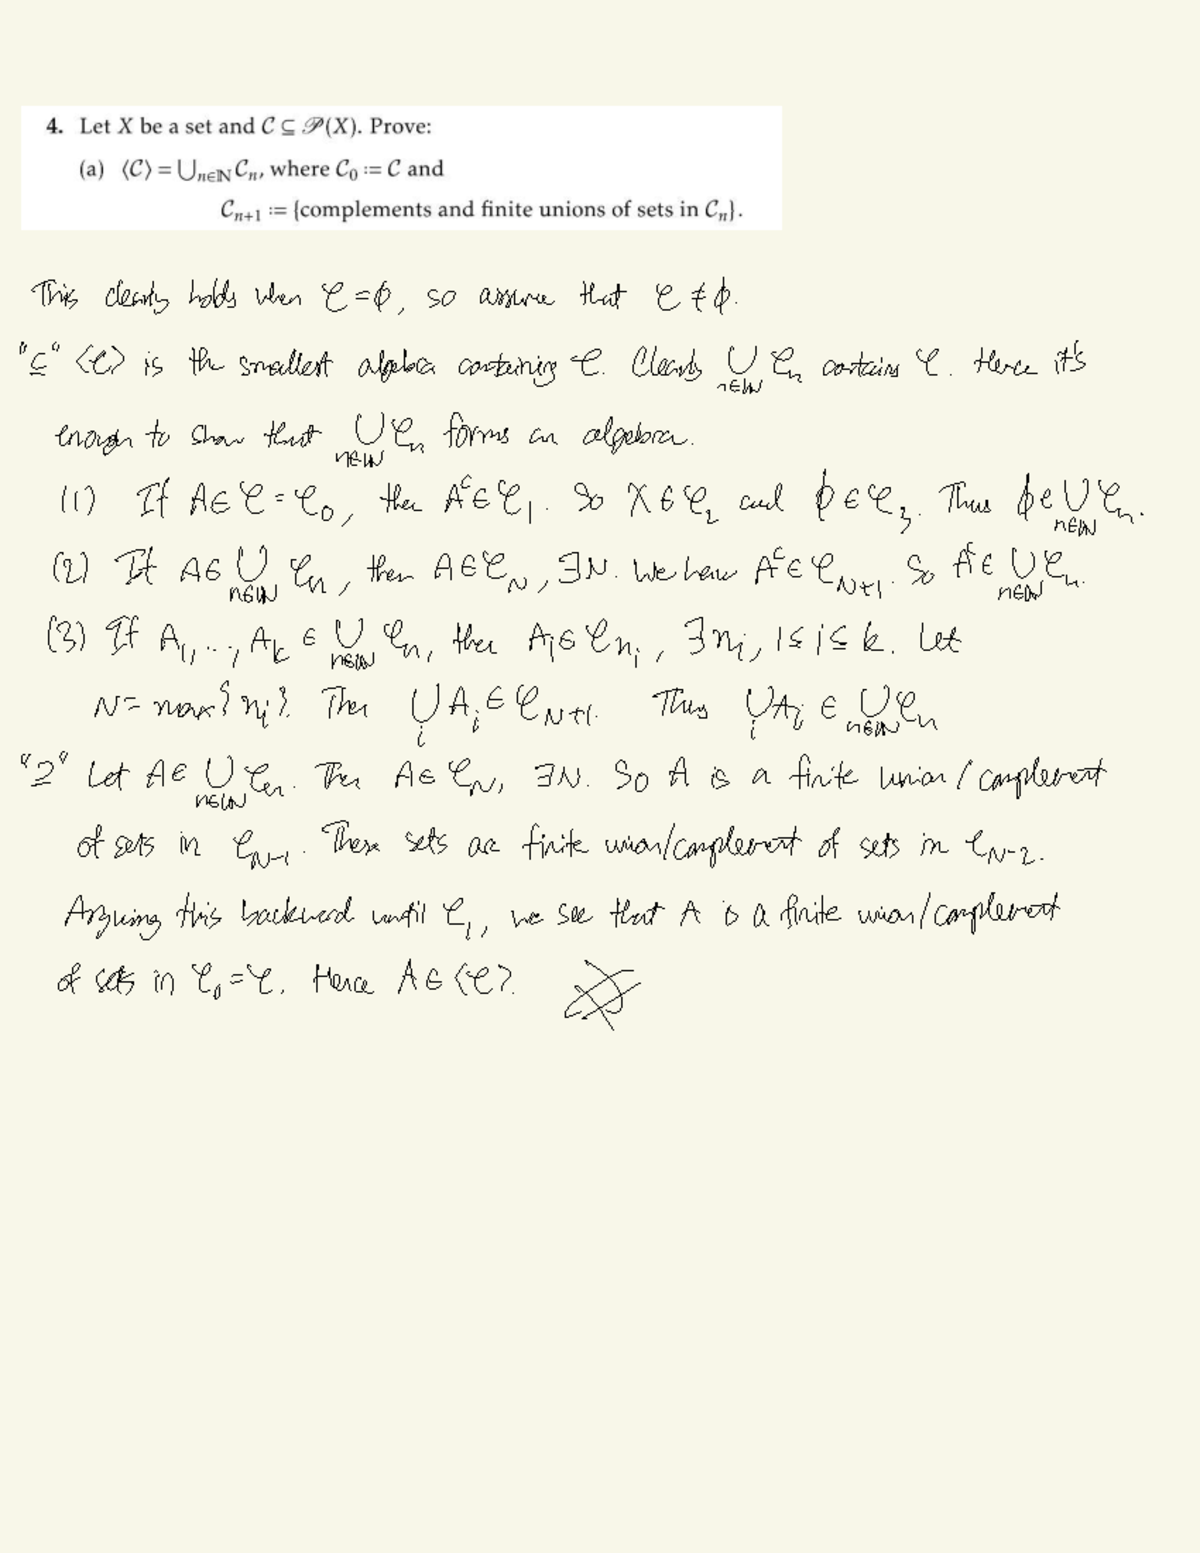 4. Let X be a set and C ⊆ 𝒫(X). Prove:
(a) ⟨C⟩ = ⋃ₙ∈ℕ Cₙ, where C₀ := C and
Cₙ₊₁ := {complements and finite unions of sets in Cₙ}.
This clearly holds when C = ∅, so assume that C ≠ ∅.
"⊆" ⟨C⟩ is the smallest algebra containing C. Clearly ⋃ₙ∈ℕ Cₙ contains C. Hence it's
enough to show that ⋃ₙ∈ℕ Cₙ forms an algebra.
(1) If A ∈ C = C₀, then Aᶜ ∈ C₁. So X ∈ C₂ and ∅ ∈ C₃. Thus ∅ ∈ ⋃ₙ∈ℕ Cₙ.
(2) If A ∈ ⋃ₙ∈ℕ Cₙ, then A ∈ C_N, ∃N. We have Aᶜ ∈ C_N+1. So Aᶜ ∈ ⋃ₙ∈ℕ Cₙ.
(3) If A₁, ..., Aₖ ∈ ⋃ₙ∈ℕ Cₙ, then Aᵢ ∈ C_nᵢ, ∃nᵢ, 1 ≤ i ≤ k. Let
N = max{nᵢ}. Then ⋃ᵢ Aᵢ ∈ C_N+1. Thus ⋃ᵢ Aᵢ ∈ ⋃ₙ∈ℕ Cₙ
"⊇" Let A ∈ ⋃ₙ∈ℕ Cₙ. Then A ∈ C_N, ∃N. So A is a finite union/complement
of sets in C_N-1. These sets are finite union/complement of sets in C_N-2.
Arguing this backward until C₁, we see that A is a finite union/complement
of sets in C₀ = C. Hence A ∈ ⟨C⟩.